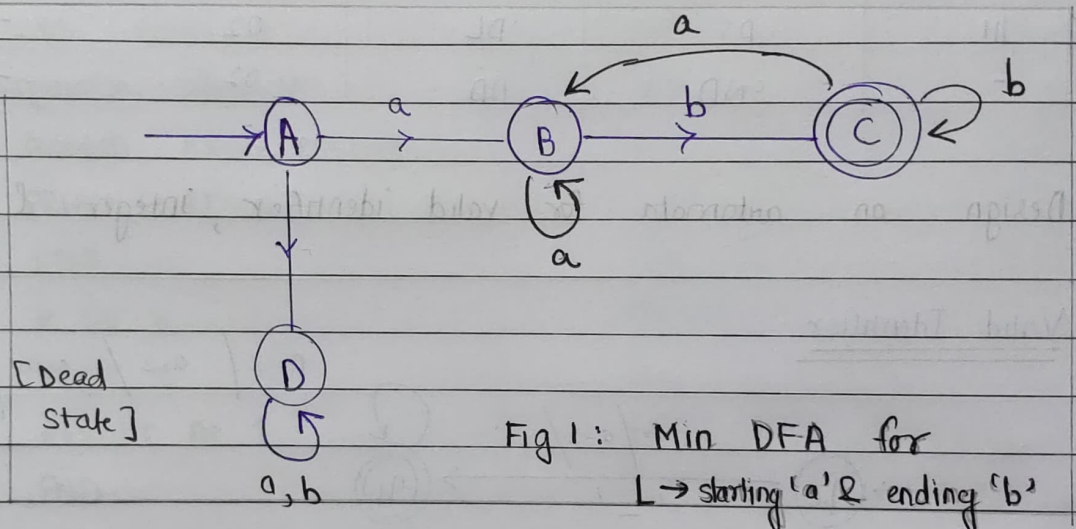 a
a
b
b
A
B
C
a
D
[Dead
State]
a,b
Fig 1: Min DFA for
L → starting 'a' & ending 'b'